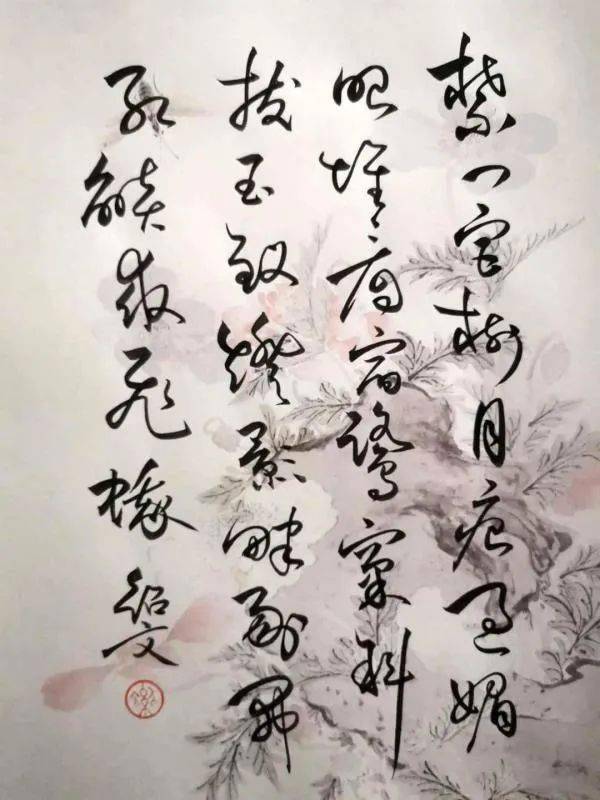 禁门宫樹月痕过媚
眼惟看宿鷺窠斜
拔玉釵燈影畔剔開
红焰救飞蛾 绍文